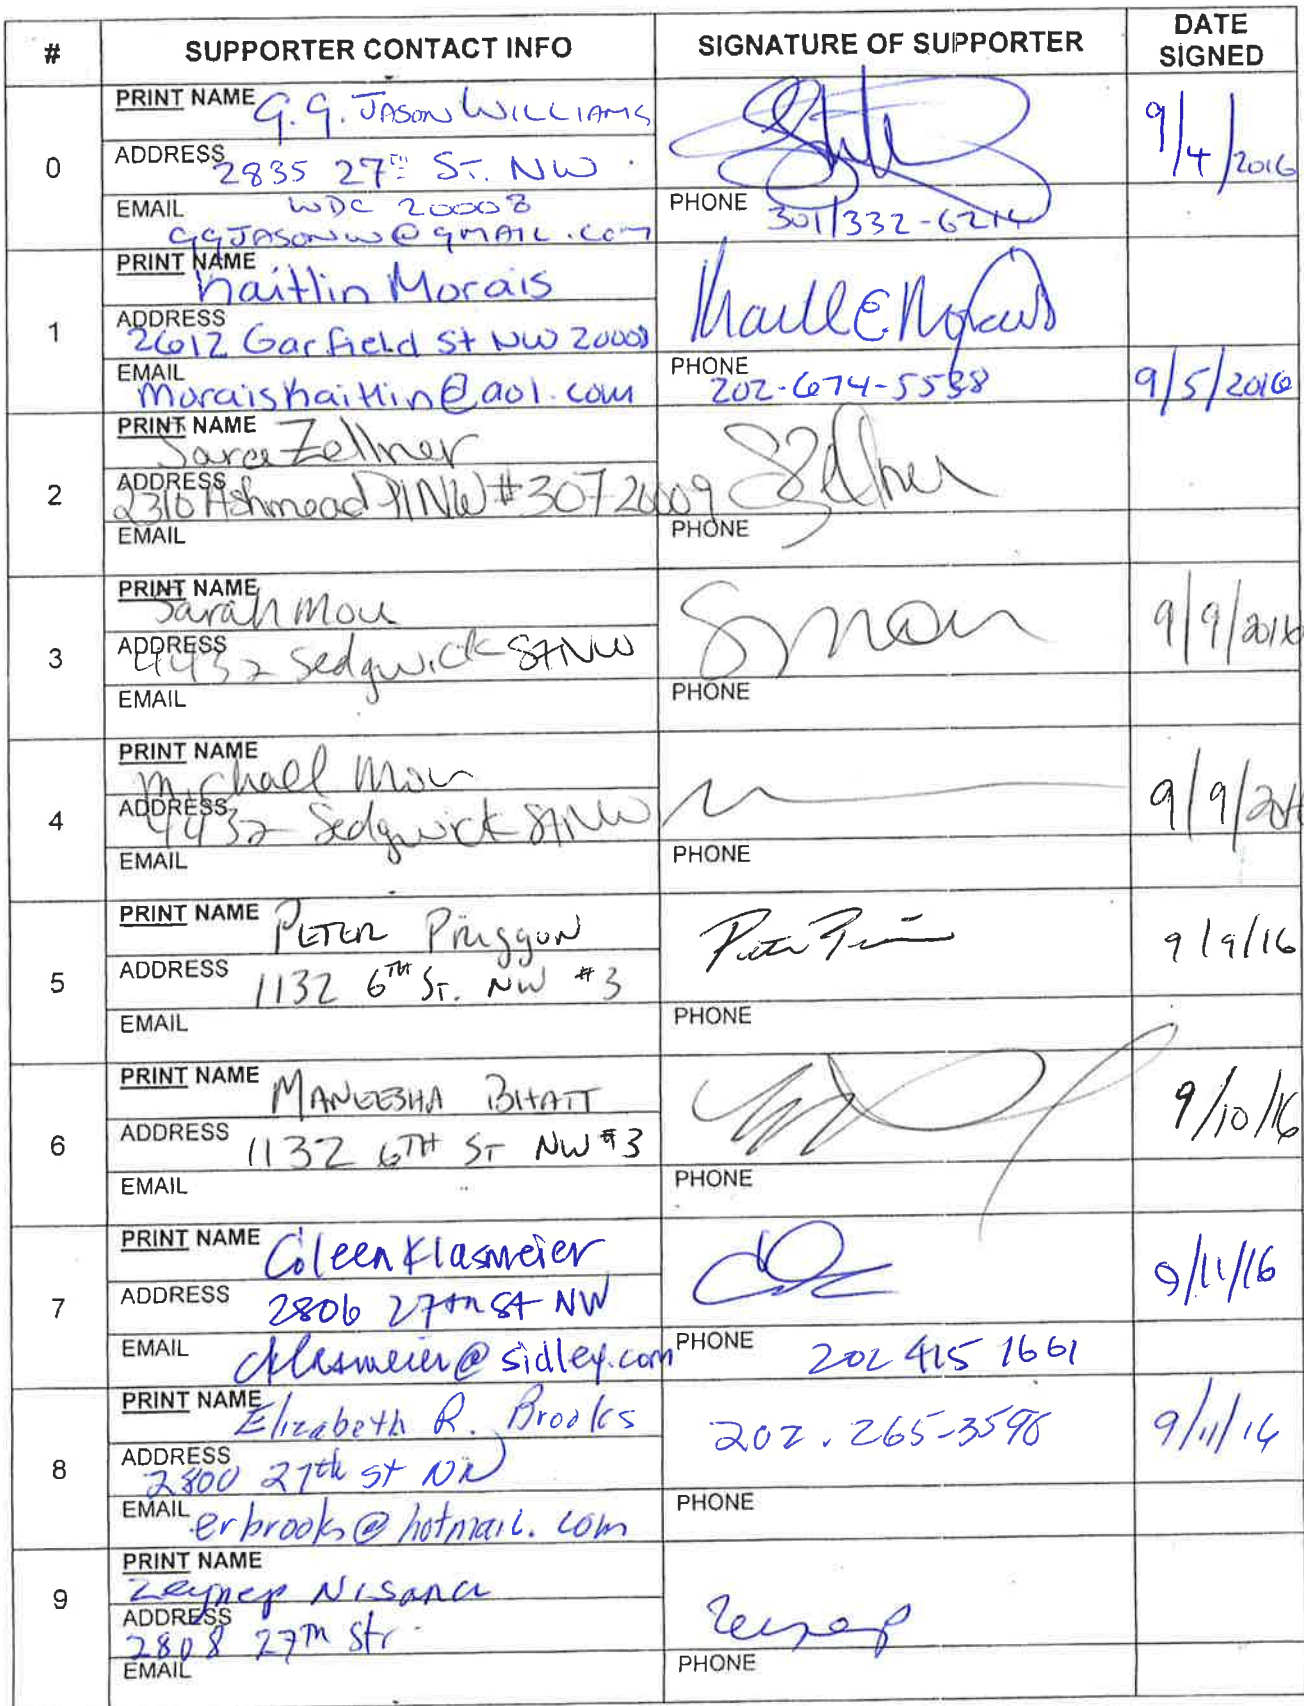 # SUPPORTER CONTACT INFO SIGNATURE OF SUPPORTER DATE SIGNED
0
PRINT NAME G.G. JASON WILLIAMS
ADDRESS 2835 27TH ST. NW
WDC 20008
EMAIL GGJASONW@GMAIL.COM
PHONE 301/332-6214
9/4/2016
1
PRINT NAME Kaitlin Morais
ADDRESS 2612 Garfield St NW 20008
EMAIL moraiskaitlin@aol.com
PHONE 202-674-5538
9/5/2016
2
PRINT NAME Sara Zellner
ADDRESS 2310 Ashmead Pl NW #307 20009
SZellner
EMAIL
PHONE
3
PRINT NAME Sarah Mou
ADDRESS 4432 Sedgwick St NW
S Mou
EMAIL
PHONE
9/9/2016
4
PRINT NAME Michael Mou
ADDRESS 4432 Sedgwick St NW
EMAIL
PHONE
9/9/201
5
PRINT NAME PETER
ADDRESS 1132 6TH ST. NW #3
Peter
EMAIL
PHONE
9/9/16
6
PRINT NAME MANEESHA BHATT
ADDRESS 1132 6TH ST NW #3
EMAIL
PHONE
9/10/16
7
PRINT NAME Coleen Klasmeier
ADDRESS 2806 27th St NW
EMAIL cklasmeier@sidley.com
PHONE 202 415 1661
9/11/16
8
PRINT NAME Elizabeth R. Brooks
ADDRESS 2800 27th St NW
EMAIL erbrooks@hotmail.com
202.265-3598
PHONE
9/11/16
9
PRINT NAME Zeynep Nisanci
ADDRESS 2808 27th Str.
Zeynep
EMAIL
PHONE